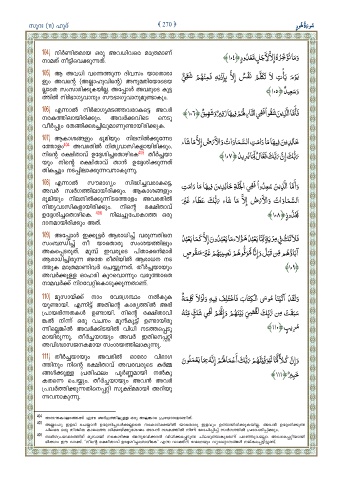 സൂറ: (11) ഹൂദ്
﴾ 270 ﴿
سُورَةُ هُودٍ
104) നിർണിതമായ ഒരു അവധിവരെ മാത്രമാണ്
നാമത് നീട്ടിവെക്കുന്നത്.
وَمَا نُؤَخِّرُهُ إِلَّا لِأَجَلٍ مَّعْدُودٍ ﴿١٠٤﴾
105) ആ അവധി വന്നെത്തുന്ന ദിവസം യാതൊരാ
ളും അവന്റെ (അല്ലാഹുവിന്റെ) അനുമതിയോടെയ
ല്ലാതെ സംസാരിക്കുകയില്ല. അപ്പോൾ അവരുടെ കൂട്ട
ത്തിൽ നിർഭാഗ്യവാനും സൗഭാഗ്യവാനുമുണ്ടാകും.
يَوْمَ يَأْتِ لَا تَكَلَّمُ نَفْسٌ إِلَّا بِإِذْنِهِ فَمِنْهُمْ شَقِيٌّ
وَسَعِيدٌ ﴿١٠٥﴾
106) എന്നാൽ നിർഭാഗ്യമടഞ്ഞവരാകട്ടെ അവർ
നരകത്തിലായിരിക്കും. അവർക്കവിടെ നെടു
വീർപ്പും തേങ്ങിക്കരച്ചിലുമാണുണ്ടായിരിക്കുക.
فَأَمَّا الَّذِينَ شَقُوا فَفِي النَّارِ لَهُمْ فِيهَا زَفِيرٌ وَشَهِيقٌ ﴿١٠٦﴾
107) ആകാശങ്ങളും ഭൂമിയും നിലനിൽക്കുന്നേട
ത്തോളം അവരതിൽ നിത്യവാസികളായിരിക്കും.
നിന്റെ രക്ഷിതാവ് ഉദ്ദേശിച്ചതൊഴികെ തീർച്ചയാ
യും നിന്റെ രക്ഷിതാവ് താൻ ഉദ്ദേശിക്കുന്നത്
തികച്ചും നടപ്പിലാക്കുന്നവനാകുന്നു.
خَالِدِينَ فِيهَا مَا دَامَتِ السَّمَاوَاتُ وَالْأَرْضُ إِلَّا مَا شَاءَ
رَبُّكَ إِنَّ رَبَّكَ فَعَّالٌ لِّمَا يُرِيدُ ﴿١٠٧﴾
108) എന്നാൽ സൗഭാഗ്യം സിദ്ധിച്ചവരാകട്ടെ,
അവർ സ്വർഗത്തിലായിരിക്കും. ആകാശങ്ങളും
ഭൂമിയും നിലനിൽക്കുന്നിടത്തോളം അവരതിൽ
നിത്യവാസികളായിരിക്കും. നിന്റെ രക്ഷിതാവ്
ഉദ്ദേശിച്ചതൊഴികെ. നിലച്ചുപോകാത്ത ഒരു
ദാനമായിരിക്കും അത്.
وَأَمَّا الَّذِينَ سُعِدُوا فَفِي الْجَنَّةِ خَالِدِينَ فِيهَا مَا دَامَتِ
السَّمَاوَاتُ وَالْأَرْضُ إِلَّا مَا شَاءَ رَبُّكَ عَطَاءً غَيْرَ
مَجْذُوذٍ ﴿١٠٨﴾
109) അപ്പോൾ ഇക്കൂട്ടർ ആരാധിച്ച് വരുന്നതിനെ
സംബന്ധിച്ച് നീ യാതൊരു സംശയത്തിലും
അകപ്പെടരുത്. മുമ്പ് ഇവരുടെ പിതാക്കന്മാർ
ആരാധിച്ചിരുന്ന അതേ രീതിയിൽ ആരാധന നട
ത്തുക മാത്രമാണിവർ ചെയ്യുന്നത്. തീർച്ചയായും
അവർക്കുള്ള ഓഹരി കുറവൊന്നും വരുത്താതെ
നാമവർക്ക് നിറവേറ്റികൊടുക്കുന്നതാണ്.
فَلَا تَكُ فِي مِرْيَةٍ مِّمَّا يَعْبُدُ هَٰؤُلَاءِ مَا يَعْبُدُونَ إِلَّا كَمَا يَعْبُدُ
آبَاؤُهُم مِّن قَبْلُ وَإِنَّا لَمُوَفُّوهُمْ نَصِيبَهُمْ غَيْرَ مَنقُوصٍ
﴿١٠٩﴾
110) മൂസായ്ക്ക് നാം വേദഗ്രന്ഥം നൽകുക
യുണ്ടായി. എന്നിട്ട് അതിന്റെ കാര്യത്തിൽ ഭിന്നാഭി
പ്രായങ്ങളുണ്ടായി. നിന്റെ രക്ഷിതാവി
ങ്കൽ നിന്ന് ഒരു വചനം മുൻകൂട്ടി ഉണ്ടായിരു
ന്നില്ലെങ്കിൽ അവർക്കിടയിൽ വിധി നടത്തപ്പെടു
മായിരുന്നു. തീർച്ചയായും അവർ ഇതിനെപ്പറ്റി
അവിശ്വാസജനകമായ സംശയത്തിലാകുന്നു.
وَلَقَدْ آتَيْنَا مُوسَى الْكِتَابَ فَاخْتُلِفَ فِيهِ وَلَوْلَا كَلِمَةٌ
سَبَقَتْ مِن رَّبِّكَ لَقُضِيَ بَيْنَهُمْ وَإِنَّهُمْ لَفِي شَكٍّ مِّنْهُ
مُرِيبٍ ﴿١١٠﴾
111) തീർച്ചയായും അവരിൽ ഓരോ വിഭാഗ
ത്തിനും നിന്റെ രക്ഷിതാവ് അവരവരുടെ കർമ്മ
ങ്ങൾക്കുള്ള പ്രതിഫലം പൂർണ്ണമായി നൽകു
കതന്നെ ചെയ്യും. തീർച്ചയായും അവൻ അവർ
പ്രവർത്തിക്കുന്നതിനെപ്പറ്റി സൂക്ഷ്മമായി അറിയു
ന്നവനാകുന്നു.
وَإِنَّ كُلًّا لَّمَّا لَيُوَفِّيَنَّهُمْ رَبُّكَ أَعْمَالَهُمْ إِنَّهُ بِمَا يَعْمَلُونَ
خَبِيرٌ ﴿١١١﴾